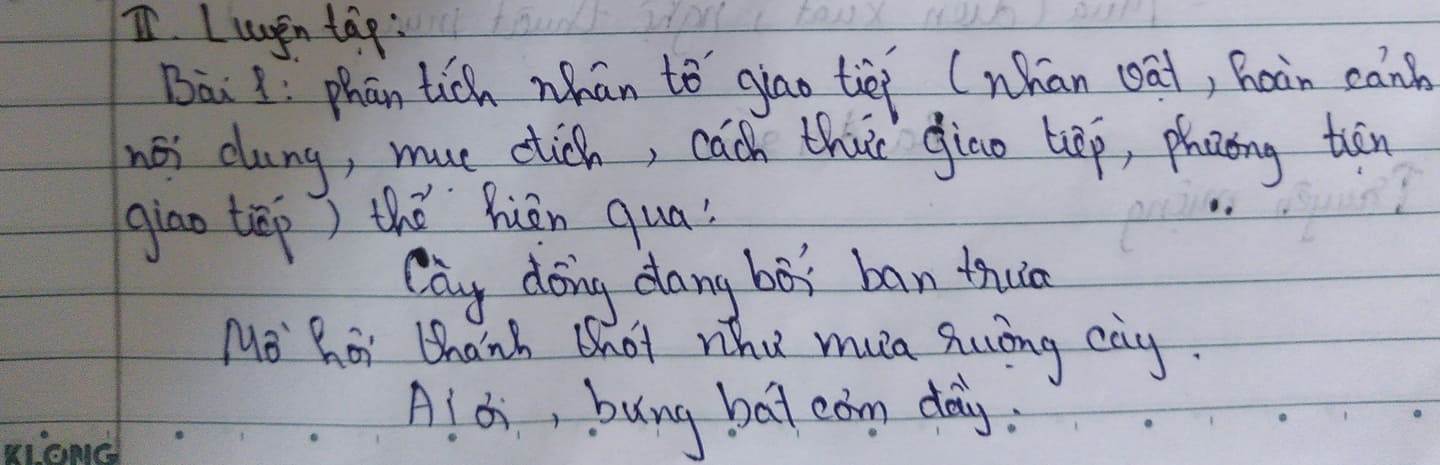 II. Luyện tập:
Bài 1: phân tích nhân tố giao tiếp (nhân vật, hoàn cảnh
nội dung, mục đích, cách thức giao tiếp, phương tiện
giao tiếp) thể hiện qua:
Cày đồng đang bối ban trưa
Mồ hôi thánh thót như mưa ruộng cày.
Ai ơi, bưng bát cơm đầy.
KLONG